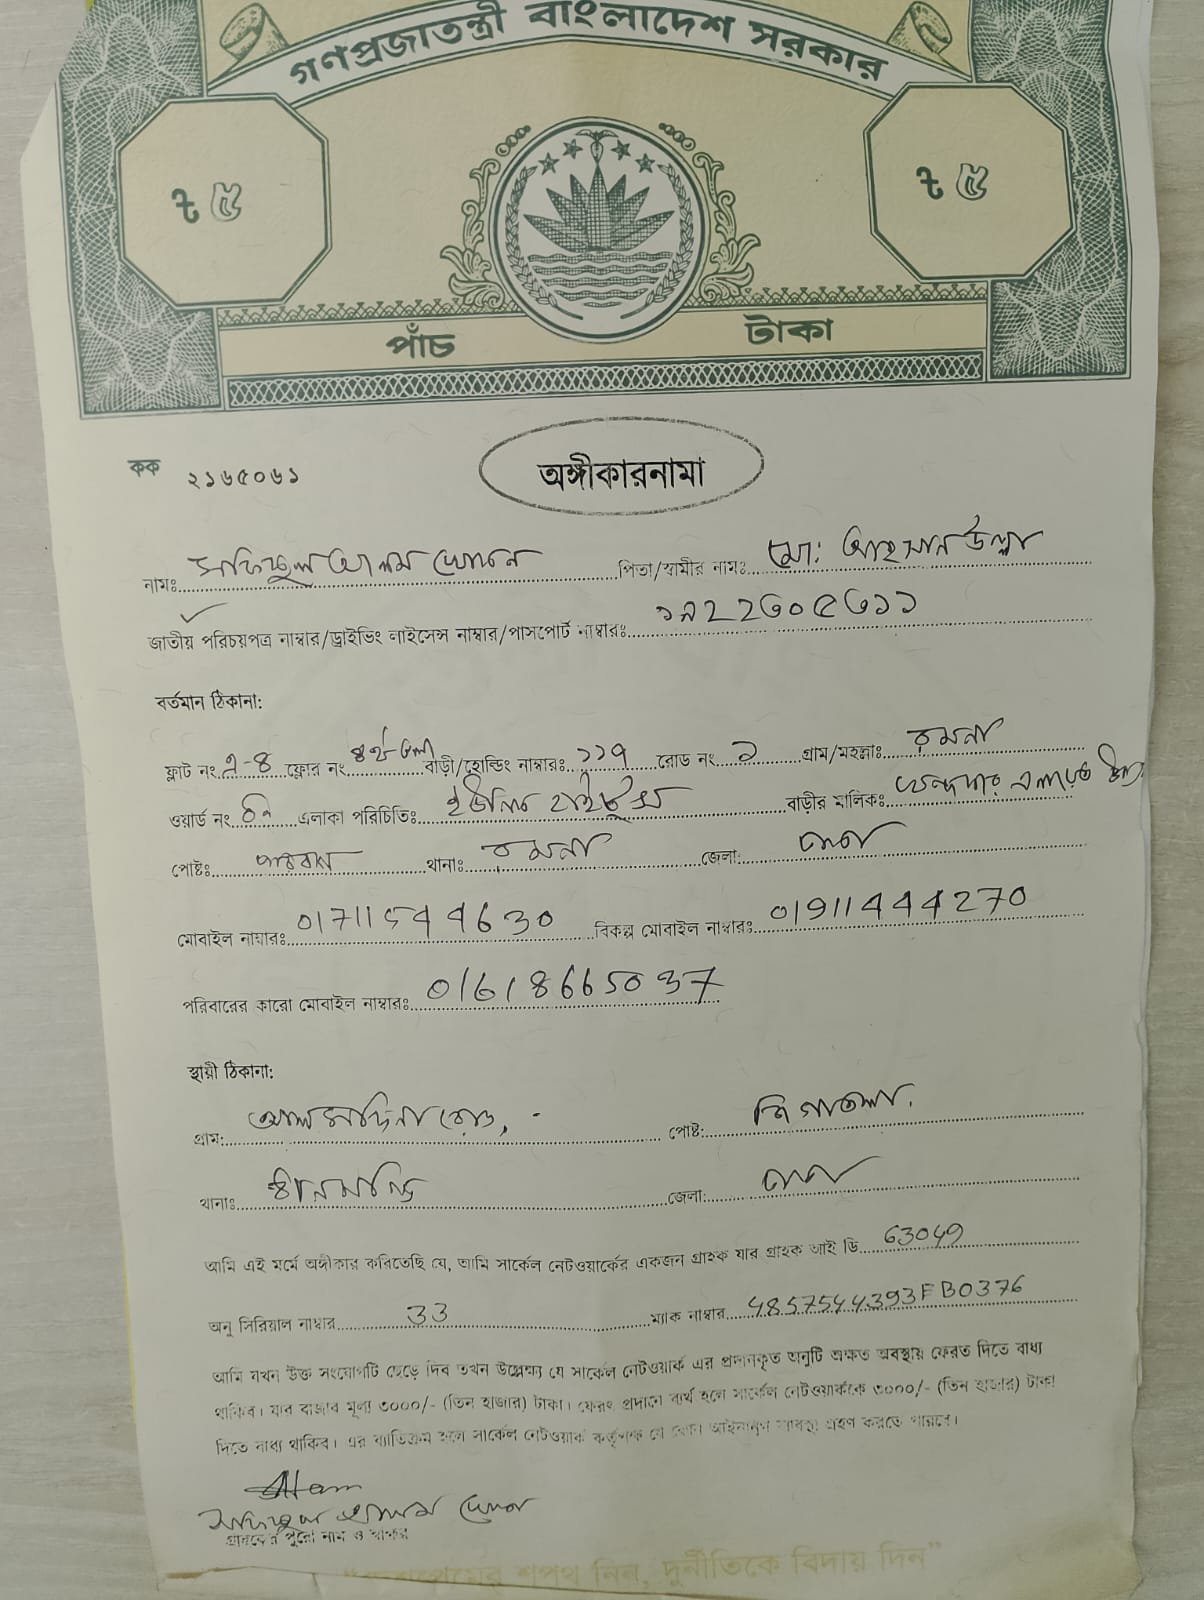 গণপ্রজাতন্ত্রী বাংলাদেশ সরকার
৳ ৫
৳ ৫
পাঁচ টাকা
কক ২১৬৫০৬১
অঙ্গীকারনামা
নামঃ আলম পিতা/স্বামীর নামঃ মো: আহসান উল্লা
জাতীয় পরিচয়পত্র নাম্বার/ড্রাইভিং লাইসেন্স নাম্বার/পাসপোর্ট নাম্বারঃ
বর্তমান ঠিকানা:
ফ্লাট নং ফ্লোর নং ৪র্থ তলা বাড়ী/হোল্ডিং নাম্বারঃ ১১৭ রোড নং ১ গ্রাম/মহল্লাঃ রমনা
ওয়ার্ড নং এলাকা পরিচিতিঃ বাড়ীর মালিকঃ
পোষ্টঃ থানাঃ রমনা জেলা: ঢাকা
মোবাইল নাম্বারঃ 01711544630 বিকল্প মোবাইল নাম্বারঃ 01911444270
পরিবারের কারো মোবাইল নাম্বারঃ 01618665037
স্থায়ী ঠিকানা:
গ্রাম: রোড, পোষ্ট: জিগাতলা.
থানাঃ ধানমন্ডি জেলা: ঢাকা
আমি এই মর্মে অঙ্গীকার করিতেছি যে, আমি সার্কেল নেটওয়ার্কের একজন গ্রাহক যার গ্রাহক আই ডি
অনু সিরিয়াল নাম্বার 33 ম্যাক নাম্বার 48575444393FB0376
আমি যখন উক্ত সংযোগটি ছেড়ে দিব তখন উল্লেখ্য যে সার্কেল নেটওয়ার্ক এর প্রদানকৃত অনুটি অক্ষত অবস্থায় ফেরত দিতে বাধ্য
থাকিব। যার বাজার মূল্য ৩০০০/- (তিন হাজার) টাকা। ফেরৎ প্রদানে ব্যর্থ হলে সার্কেল নেটওয়ার্ককে ৩০০০/- (তিন হাজার) টাকা
দিতে বাধ্য থাকিব। এর ব্যতিক্রম হলে সার্কেল নেটওয়ার্ক কর্তৃপক্ষ যে কোন আইনানুগ ব্যবস্থা গ্রহণ করতে পারবে।
Alam
আলম
গ্রাহকের পুরো নাম ও স্বাক্ষর
শপথ নিন, দুর্নীতিকে বিদায় দিন"